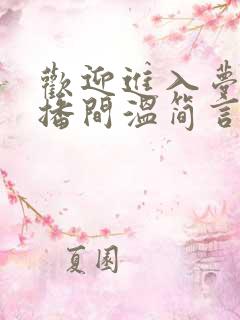 歡迎進入夢
播間溫简言
夏園